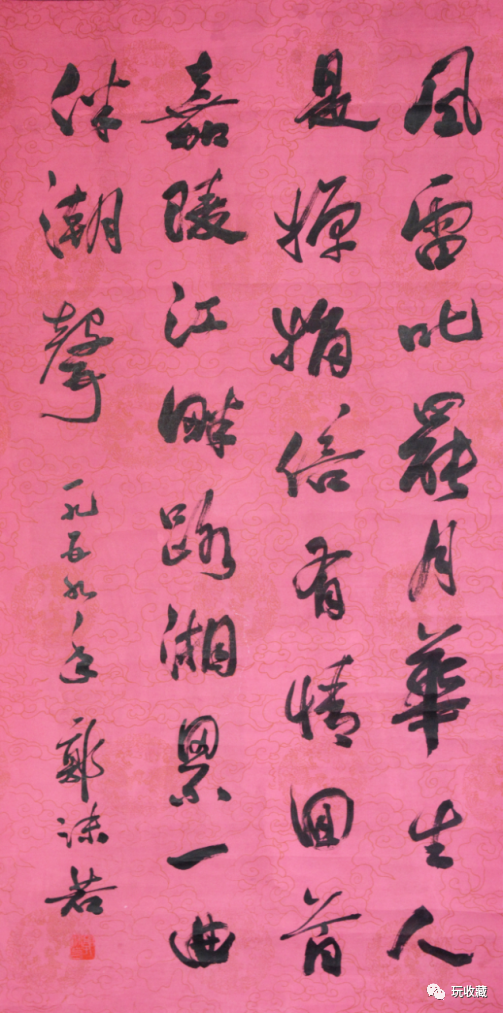 風雷叱罷月華生人
是嬋娟倍有情回首
嘉陵江畔路湘累一曲
伴潮聲 一九五九年 郭沫若
玩收藏